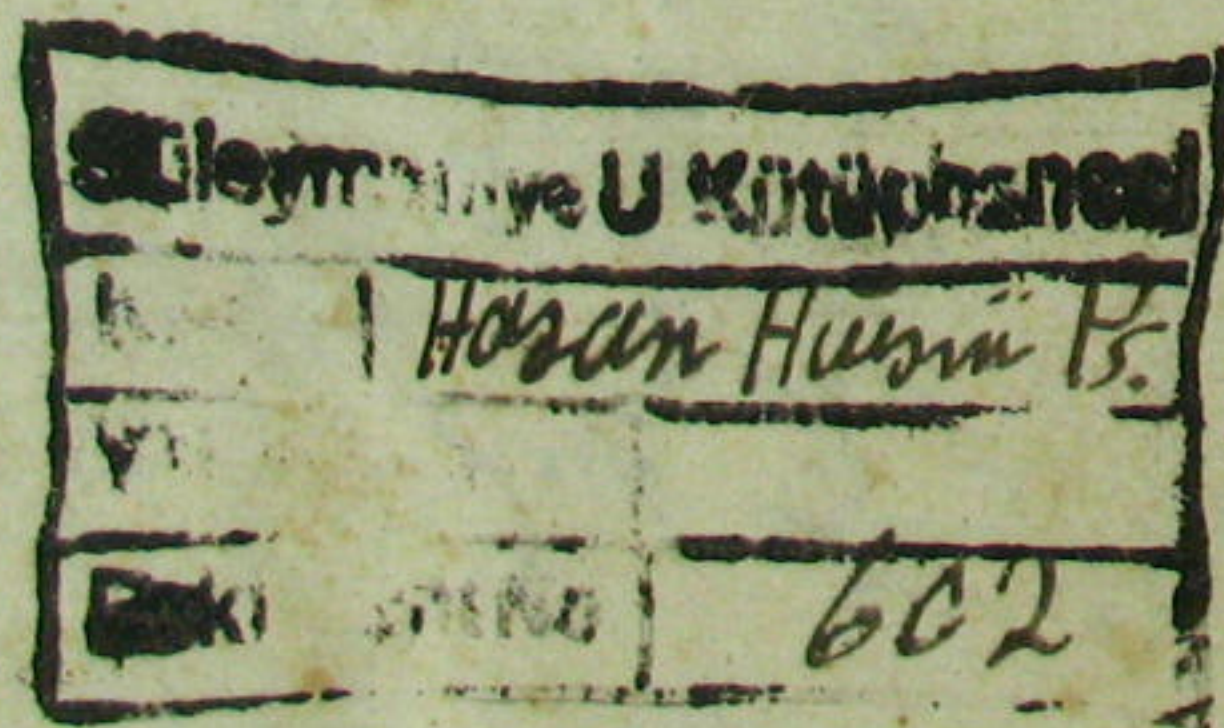 Süleymaniye U Kütüphanesi
K Hasan Hüsnü Pş.
Y
Eski Kayıt No 602